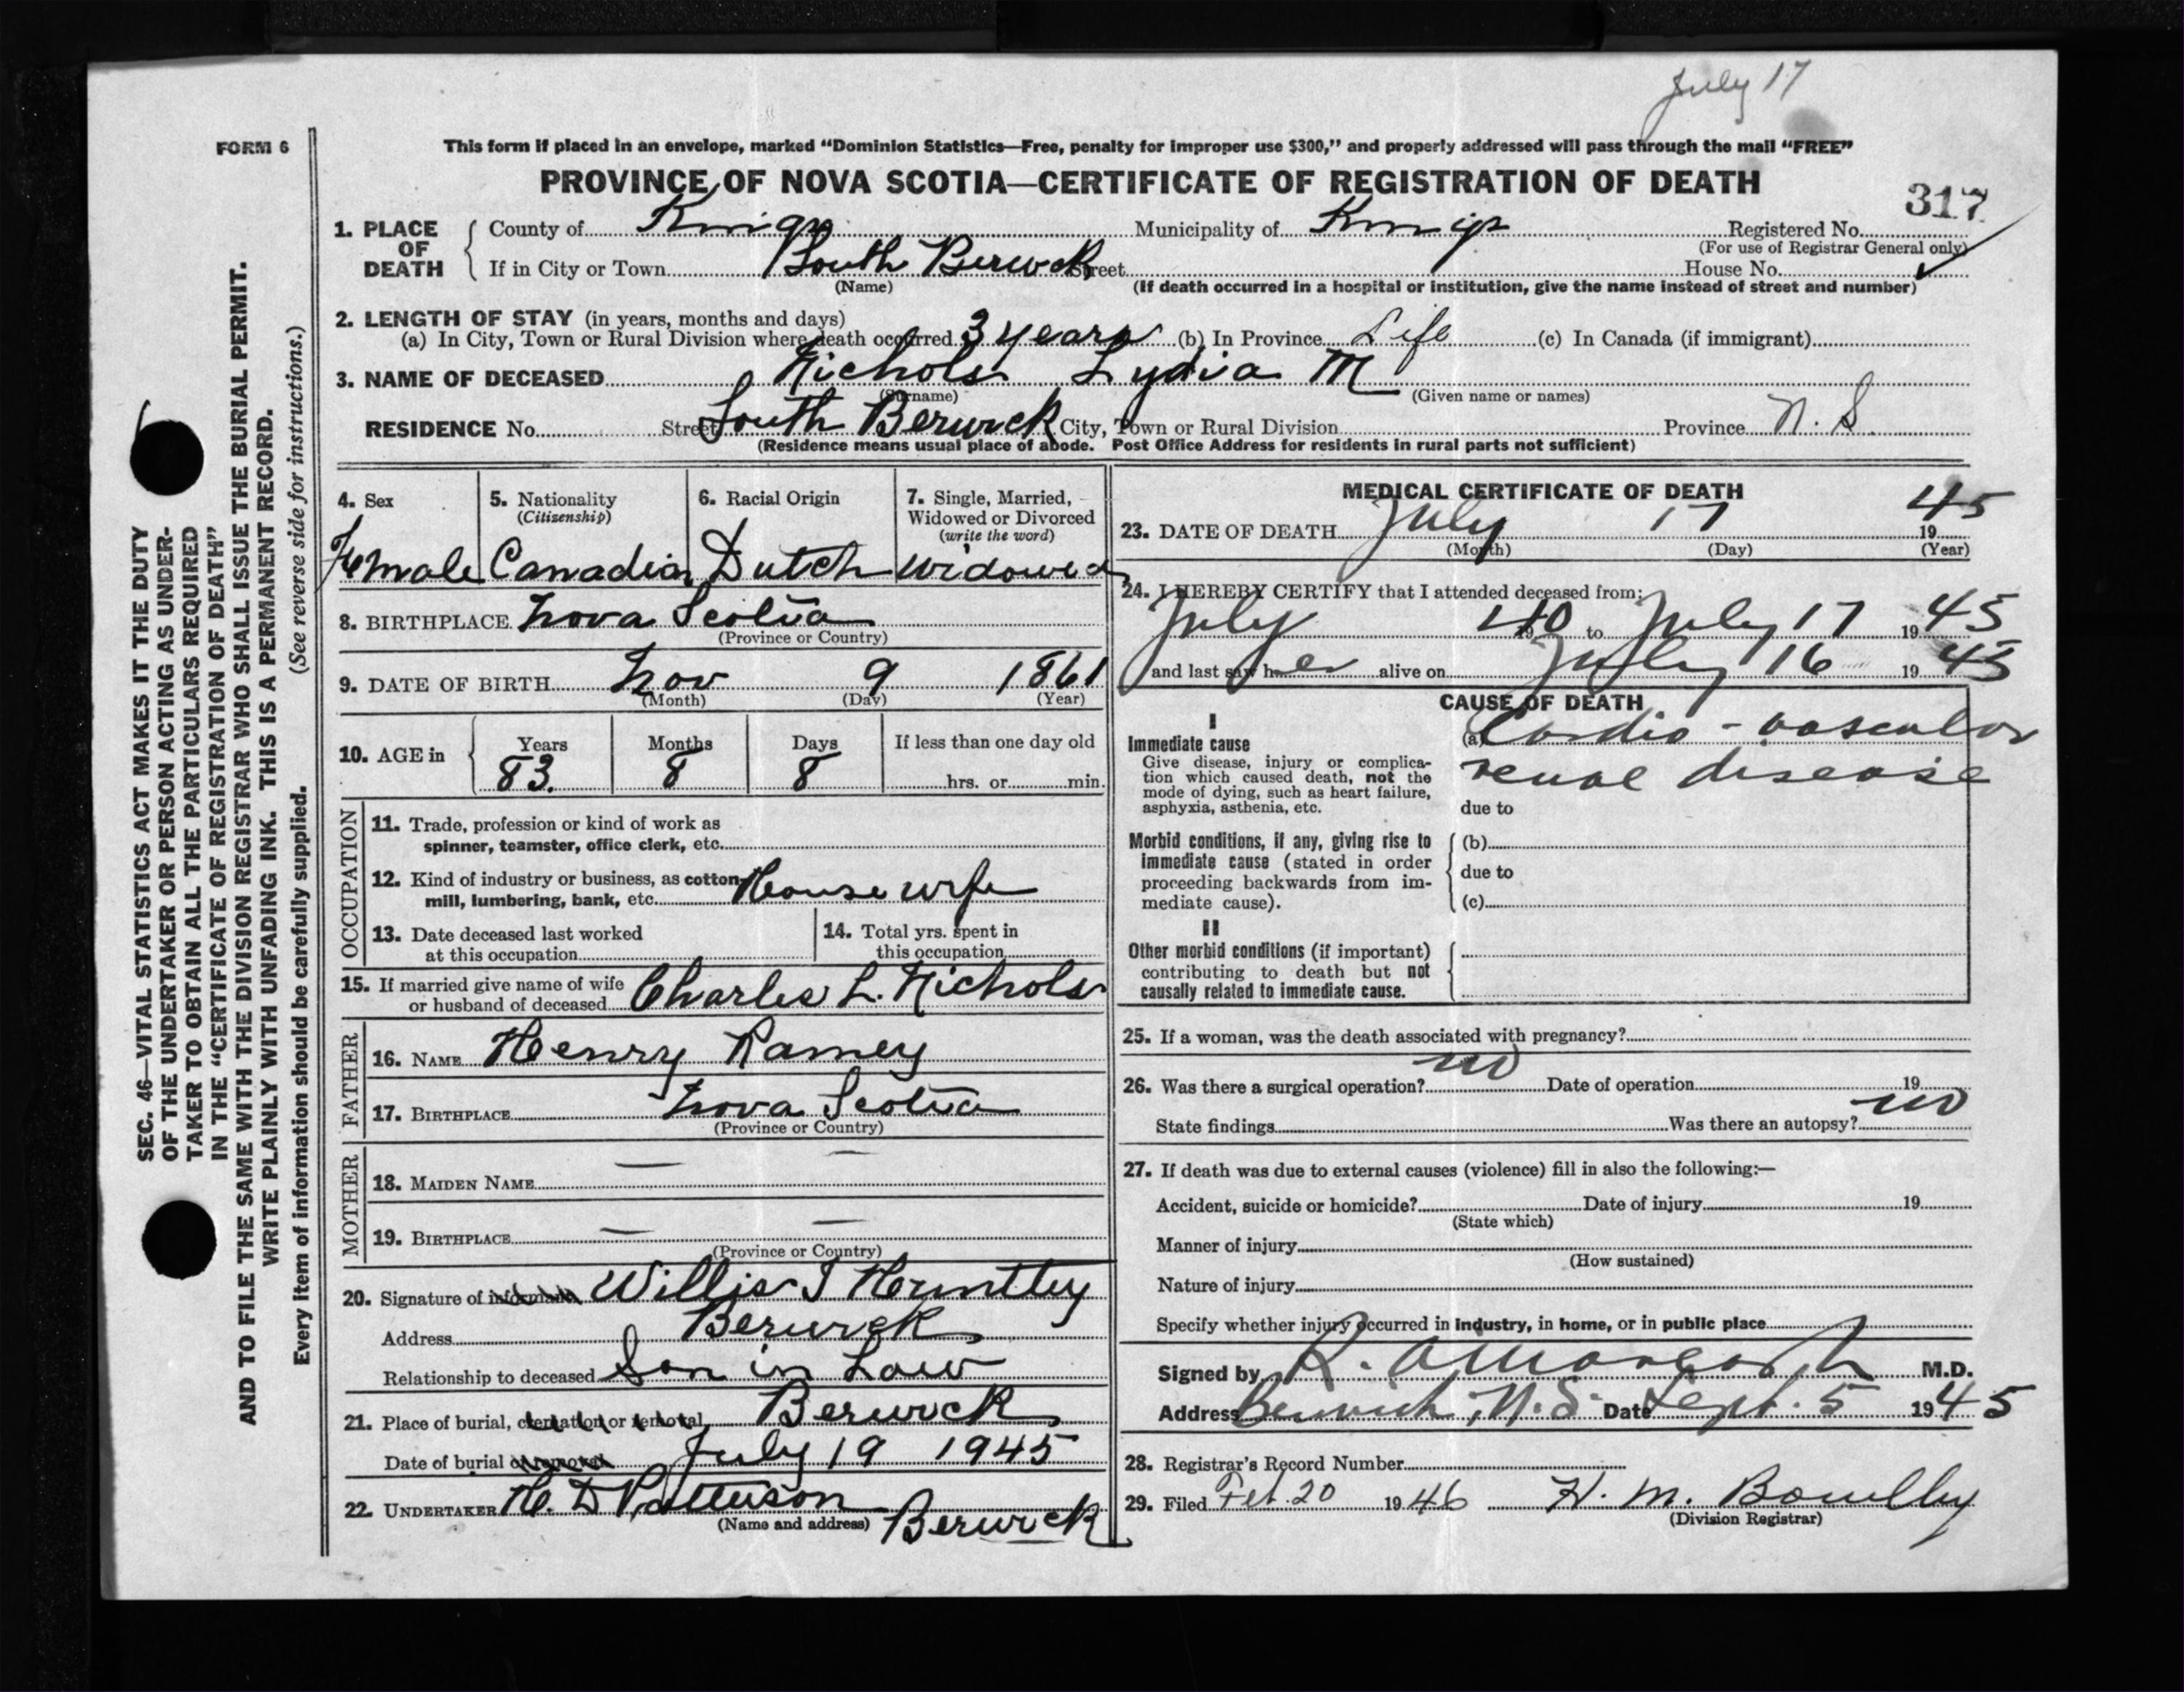 July 17
FORM 6
This form if placed in an envelope, marked “Dominion Statistics—Free, penalty for improper use $300,” and properly addressed will pass through the mail “FREE”
PROVINCE OF NOVA SCOTIA—CERTIFICATE OF REGISTRATION OF DEATH
317
1. PLACE OF DEATH County of Kings Municipality of Kings Registered No.
(For use of Registrar General only)
If in City or Town South Berwick Street House No.
(Name) (If death occurred in a hospital or institution, give the name instead of street and number)
2. LENGTH OF STAY (in years, months and days)
(a) In City, Town or Rural Division where death occurred 3 years (b) In Province Life (c) In Canada (if immigrant)
3. NAME OF DECEASED Nichols Lydia M
(Surname) (Given name or names)
RESIDENCE No. Street South Berwick City, Town or Rural Division Province N. S.
(Residence means usual place of abode. Post Office Address for residents in rural parts not sufficient)
4. Sex 5. Nationality 6. Racial Origin 7. Single, Married,
(Citizenship) Widowed or Divorced
(write the word)
Female Canadian Dutch Widowed
8. BIRTHPLACE Nova Scotia
(Province or Country)
9. DATE OF BIRTH Nov 9 1861
(Month) (Day) (Year)
10. AGE in Years Months Days If less than one day old
83. 8 8 hrs. or min.
OCCUPATION
11. Trade, profession or kind of work as
spinner, teamster, office clerk, etc.
12. Kind of industry or business, as cotton
mill, lumbering, bank, etc. House wife
13. Date deceased last worked
at this occupation
14. Total yrs. spent in
this occupation
15. If married give name of wife
or husband of deceased Charles L. Nichols
FATHER
16. NAME Henry Ramey
17. BIRTHPLACE Nova Scotia
(Province or Country)
MOTHER
18. MAIDEN NAME — —
19. BIRTHPLACE — —
(Province or Country)
20. Signature of informant Willis J Huntley
Address Berwick
Relationship to deceased Son in Law
21. Place of burial, cremation or removal Berwick
Date of burial or removal July 19 1945
22. UNDERTAKER H. D Patterson
(Name and address) Berwick
MEDICAL CERTIFICATE OF DEATH
23. DATE OF DEATH July 17 1945
(Month) (Day) (Year)
24. I HEREBY CERTIFY that I attended deceased from:
July 1940 to July 17 1945
and last saw her alive on July 16 1945
CAUSE OF DEATH
I
Immediate cause
Give disease, injury or complica-
tion which caused death, not the
mode of dying, such as heart failure,
asphyxia, asthenia, etc.
(a) Cardio-vascular
renal disease
due to
Morbid conditions, if any, giving rise to
immediate cause (stated in order
proceeding backwards from im-
mediate cause).
(b)
due to
(c)
II
Other morbid conditions (if important)
contributing to death but not
causally related to immediate cause.
25. If a woman, was the death associated with pregnancy?
26. Was there a surgical operation? no Date of operation 19
State findings Was there an autopsy? no
27. If death was due to external causes (violence) fill in also the following:—
Accident, suicide or homicide? Date of injury 19
(State which)
Manner of injury
(How sustained)
Nature of injury
Specify whether injury occurred in industry, in home, or in public place
Signed by M.D.
Address Berwick, N.S. Date Sept. 5 1945
28. Registrar's Record Number
29. Filed Feb. 20 1946 H. M. Bowlby
(Division Registrar)
SEC. 46—VITAL STATISTICS ACT MAKES IT THE DUTY
OF THE UNDERTAKER OR PERSON ACTING AS UNDER-
TAKER TO OBTAIN ALL THE PARTICULARS REQUIRED
IN THE “CERTIFICATE OF REGISTRATION OF DEATH”
AND TO FILE THE SAME WITH THE DIVISION REGISTRAR WHO SHALL ISSUE THE BURIAL PERMIT.
WRITE PLAINLY WITH UNFADING INK. THIS IS A PERMANENT RECORD.
(See reverse side for instructions.)
Every item of information should be carefully supplied.